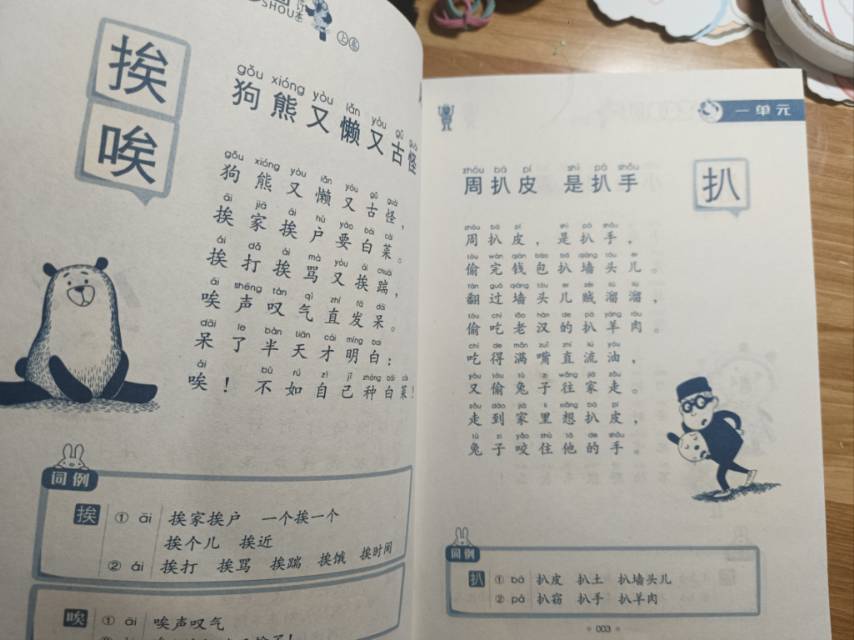 SHOU
上集
挨
唉
gǒu xióng yòu lǎn yòu gǔ guài
狗熊又懒又古怪
gǒu xióng yòu lǎn yòu gǔ guài
狗熊又懒又古怪，
āi jiā āi hù yào bái cài
挨家挨户要白菜。
ái dǎ ái mà yòu ái chuài
挨打挨骂又挨踹，
āi shēng tàn qì zhí fā dāi
唉声叹气直发呆。
dāi le bàn tiān cái míng bai
呆了半天才明白：
ài bù rú zì jǐ zhòng bái cài
唉！不如自己种白菜！
词例
挨 ① āi 挨家挨户 一个挨一个
挨个儿 挨近
② ái 挨打 挨骂 挨踹 挨饿 挨时间
唉 ① āi 唉声叹气
一单元
扒
zhōu bā pí shì pá shǒu
周扒皮 是扒手
zhōu bā pí shì pá shǒu
周扒皮，是扒手，
tōu wán qián bāo bā qiáng tóu ér
偷完钱包扒墙头儿。
fān guò qiáng tóu ér zéi liū liū
翻过墙头儿贼溜溜，
tōu chī lǎo hàn de pá yáng ròu
偷吃老汉的扒羊肉。
chī de mǎn zuǐ zhí liú yóu
吃得满嘴直流油，
yòu tōu tù zi wǎng jiā zǒu
又偷兔子往家走。
zǒu dào jiā lǐ xiǎng bā pí
走到家里想扒皮，
tù zi yǎo zhù tā de shǒu
兔子咬住他的手。
词例
扒 ① bā 扒皮 扒土 扒墙头儿
② pá 扒窃 扒手 扒羊肉
003